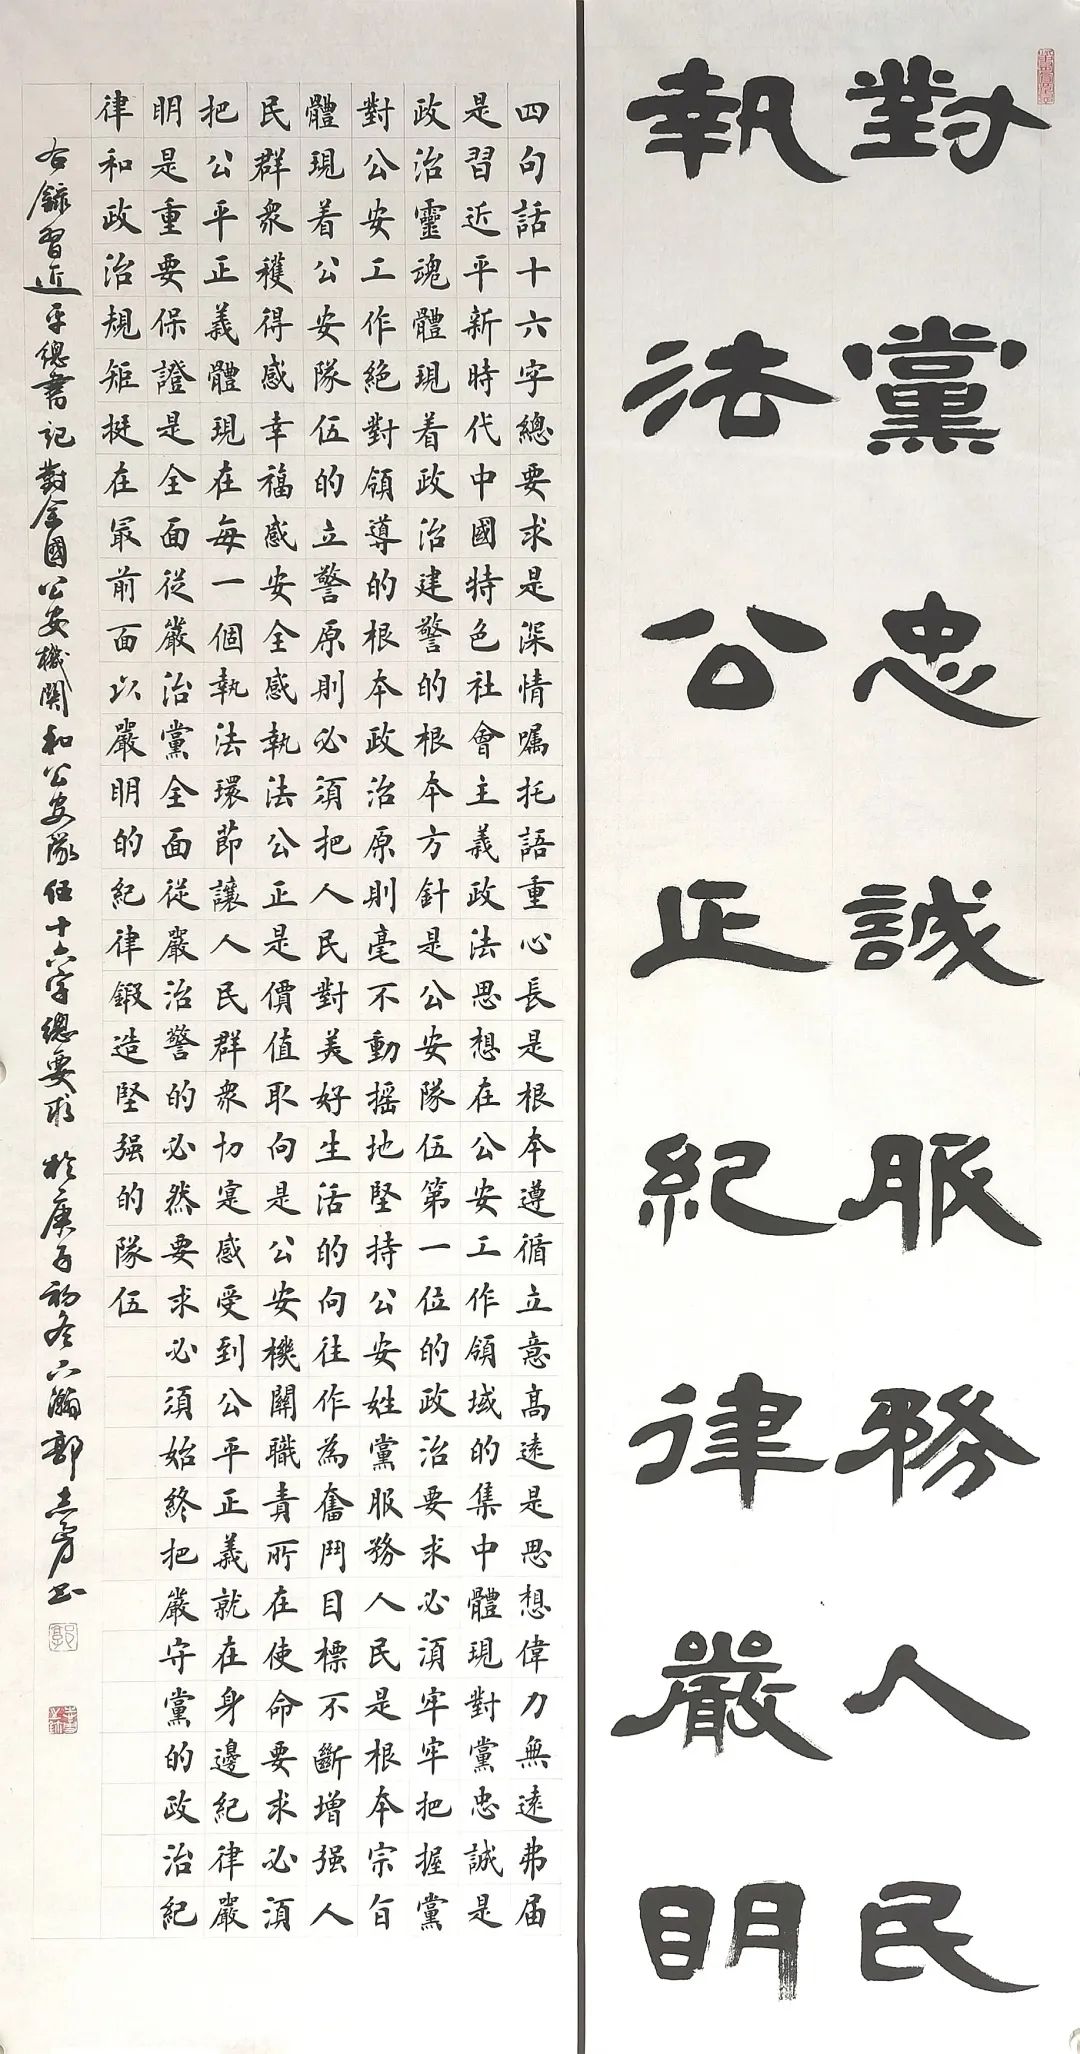 對黨忠誠服務人民
執法公正紀律嚴明
四句話十六字總要求是深情囑托語重心長是根本遵循立意高遠是思想偉力無遠弗届
是習近平新時代中國特色社會主義政法思想在公安工作領域的集中體現對黨忠誠是
政治靈魂體現着政治建警的根本方針是公安隊伍第一位的政治要求必須牢牢把握黨
對公安工作絶對領導的根本政治原則毫不動摇地堅持公安姓黨服務人民是根本宗旨
體現着公安隊伍的立警原則必須把人民對美好生活的向往作為奮鬥目標不斷增强人
民群衆穫得感幸福感安全感執法公正是價值取向是公安機關職責所在使命要求必須
把公平正義體現在每一個執法環節讓人民群衆切寔感受到公平正義就在身邊紀律嚴
明是重要保證是全面從嚴治黨全面從嚴治警的必然要求必須始終把嚴守黨的政治紀
律和政治規矩挺在最前面以嚴明的紀律鍛造堅强的隊伍
右錄習近平總書記對全國公安機関和公安隊伍十六字總要求 於庚子初冬 瀚郭志勇书